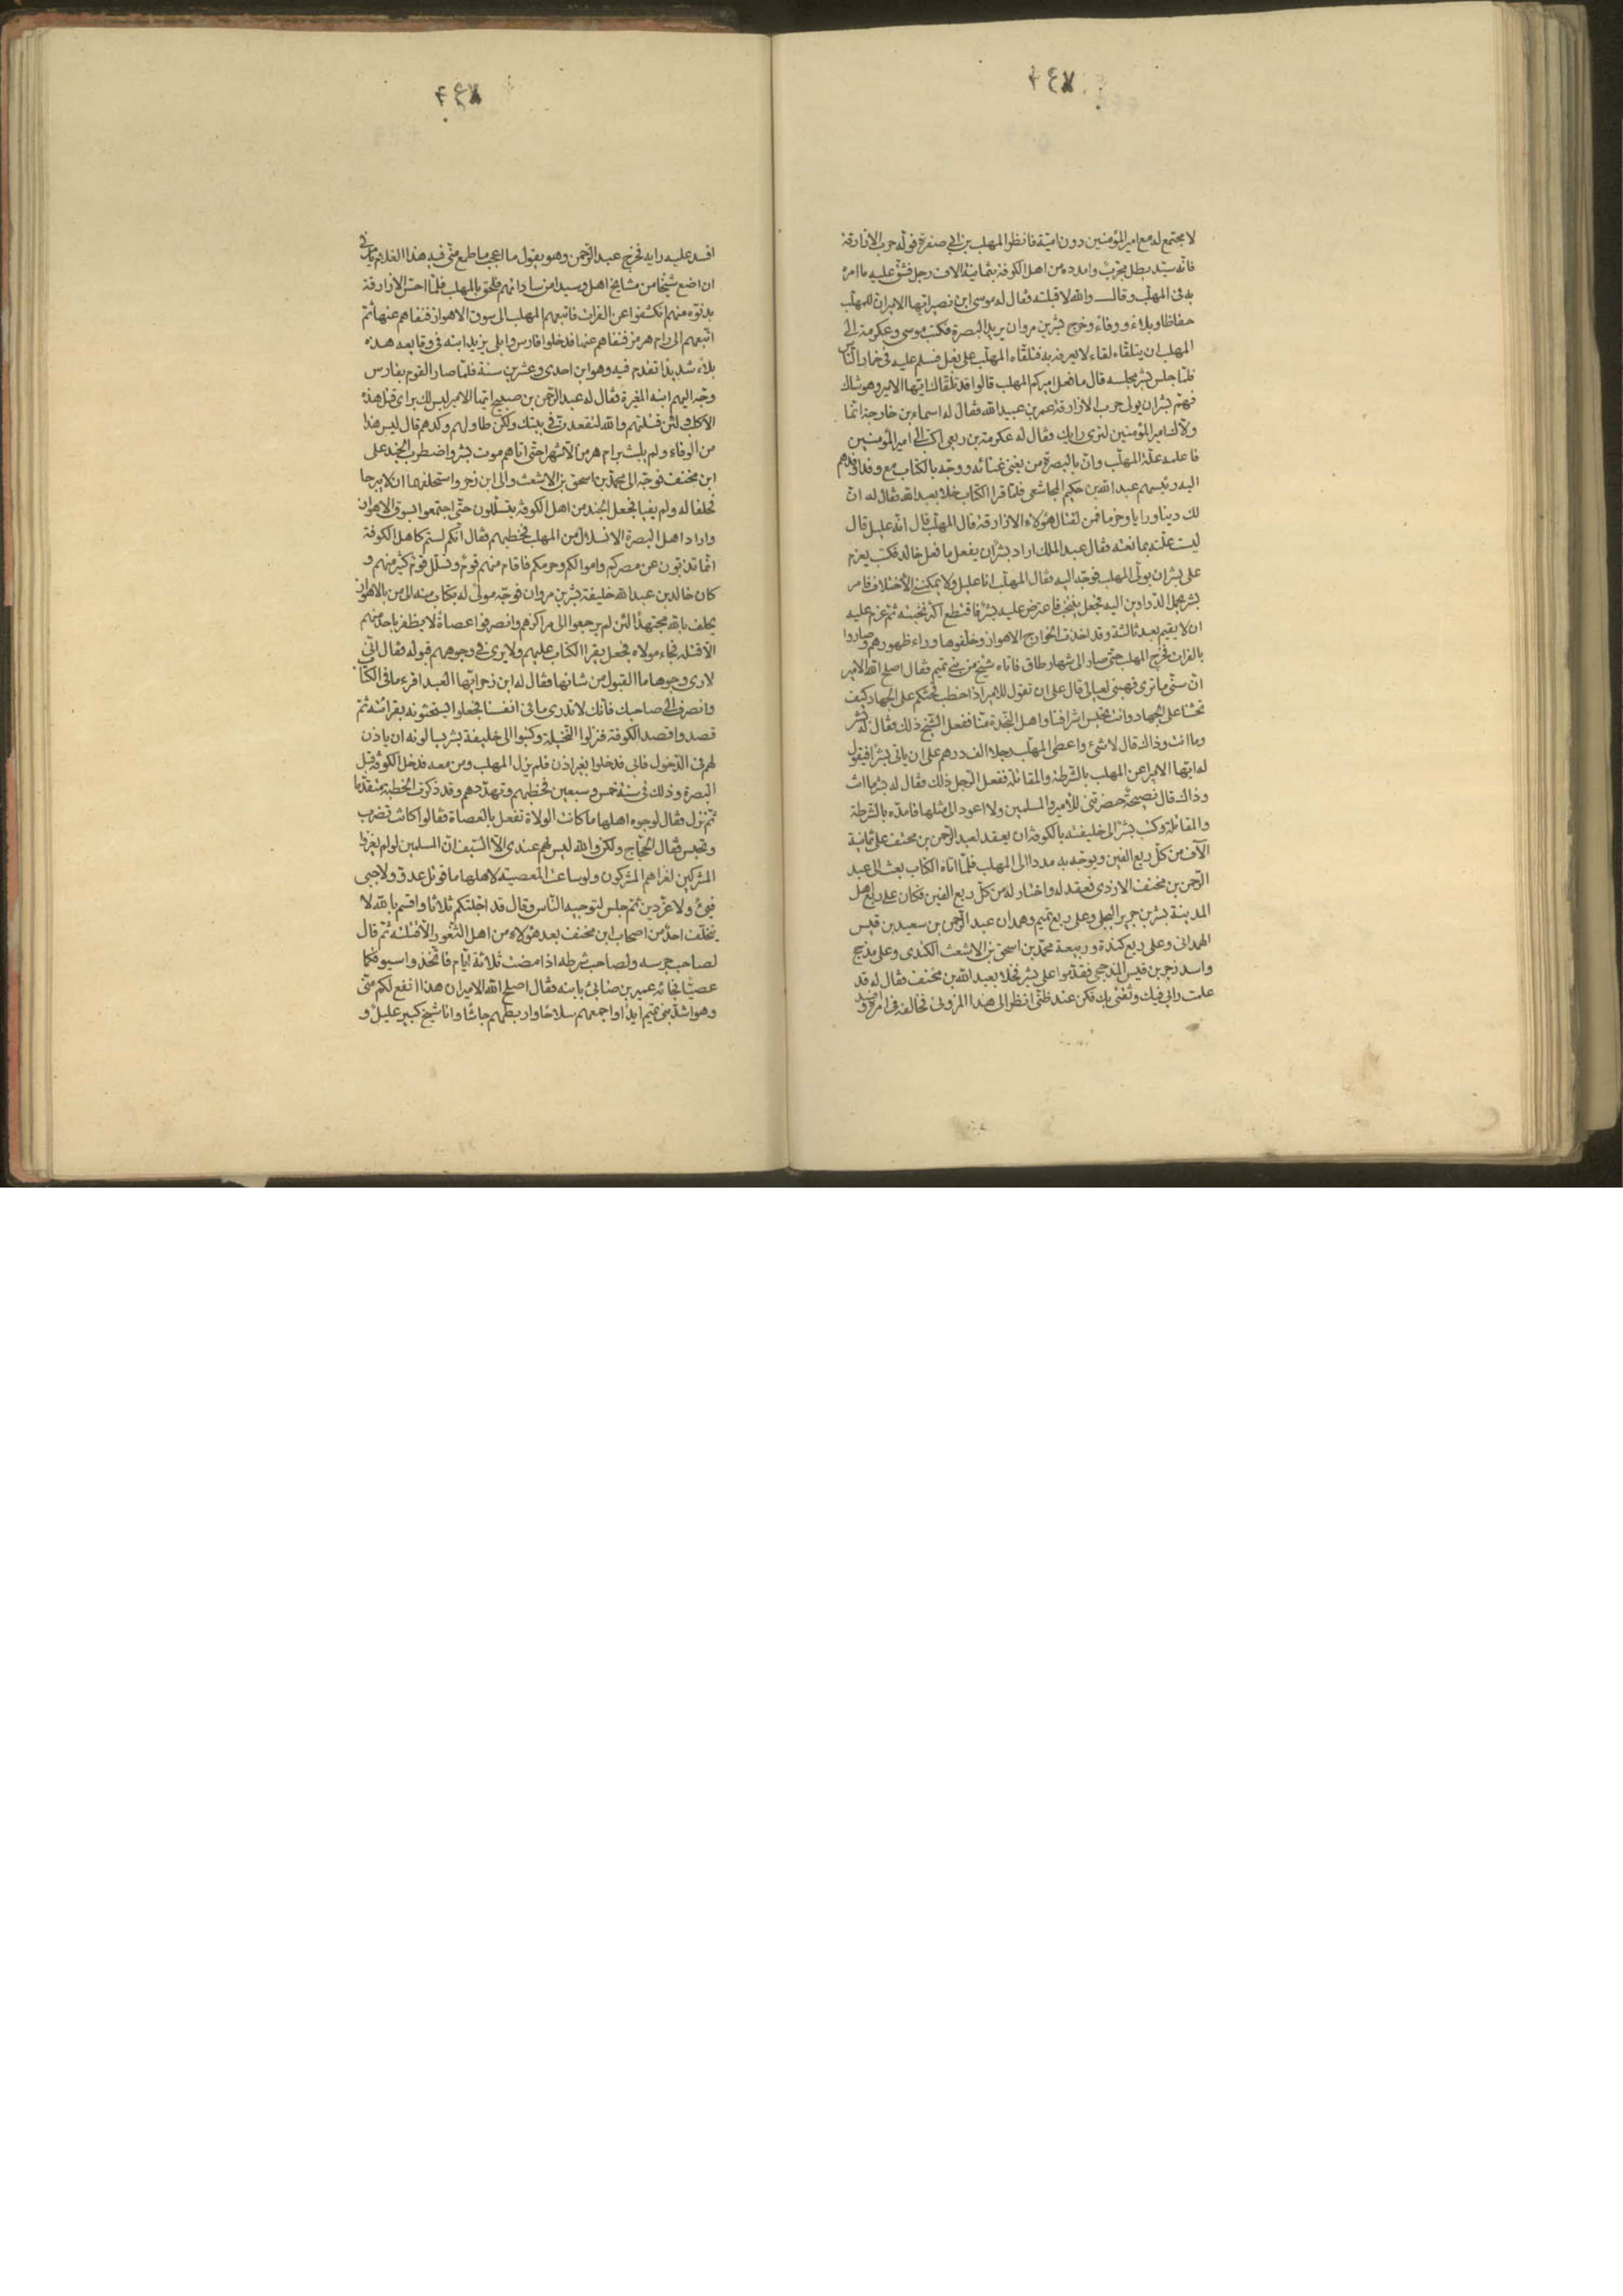 ٢٤٧
لا يجتمع له مع امير المؤمنين دون امية فانظر المهلب بن ابي صفرة فوله حرب الازارقة
فانه سيد بطل مجرب وامدده من اهل الكوفة بثمانية الاف رجل فشق عليه ما امره
به في المهلب وقال والله لاقبلنه فقال له موسى ابن نصير ايها الامير ان للمهلب
حفاظا وبلاء ووفاء وخرج بشر بن مروان يريد البصرة فكتب موسى وعكرمة الى
المهلب ان يتلقاه لقاء لا يعرفه به فتلقاه المهلب على بغل فسلم عليه في غمار الناس
فلما جلس بشر مجلسه قال ما فعل اميركم المهلب قالوا قد تلقاك ايها الامير وهو شاك
فهم بشر ان يولى حرب الازارقة عمر بن عبيد الله فقال له اسماء بن خارجة انما
ولاك امير المؤمنين لترى رايك وقال له عكرمة بن ربعى اكتب الى امير المؤمنين
فاعلمه علة المهلب وان بالبصرة من يغنى غنائه ووجه بالكتاب مع وفد اوفدهم
اليه رئيسهم عبد الله بن حكيم المجاشعى فلما قرا الكتاب خلا بعبد الله فقال له ان
لك دينا ورايا وحزما فمن لقتال هؤلاء الازارقة قال المهلب قال انه عليل قال
ليست علته بمانعته فقال عبد الملك اراد بشر ان يفعل ما فعل خالد فكتب يعزم
على بشر ان يولى المهلب فوجه اليه فقال المهلب انا عليل ولا يمكننى الاختلاف فامر
بشر بحمل الدواوين اليه فجعل ينتخب فاعترض عليه بشر فاقتطع اكثر نخبته ثم عزم عليه
ان لا يقيم بعد ثالثة وقد اخذت الخوارج الاهواز وخلفوها وراء ظهورهم وصاروا
بالفرات فخرج المهلب حتى صار الى شهار طاق فاتاه شيخ من بنى تميم فقال اصلح الله الامير
ان سنى ما ترى فهبنى لعيالى قال على ان تقول للامير اذا خطب فحثكم على الجهاد كيف
تحثنا على الجهاد وانت تحبس اشرافنا واهل النجدة منا ففعل الشيخ ذلك فقال له بشر
وما انت وذاك قال لا شئ واعطى المهلب رجلا الف درهم على ان ياتى بشرا فيقول
له ايها الامير اعن المهلب بالشرطة والمقاتلة ففعل الرجل ذلك فقال له بشر ما انت
وذاك قال نصيحة حضرتنى للامير والمسلمين ولا اعود الى مثلها فامده بالشرطة
والمقاتلة وكتب بشر الى خليفته بالكوفة ان يعقد لعبد الرحمن بن مخنف على ثمانية
الآف من كل ربع الفين ويوجه به مددا الى المهلب فلما اتاه الكتاب بعث الى عبد
الرحمن بن مخنف الازدى فعقد له واختار له من كل ربع الفين فكان على ربع اهل
المدينة بشر بن جرير البجلى وعلى ربع تميم وهمدان عبد الرحمن بن سعيد بن قيس
الهمدانى وعلى ربع كندة وربيعة محمد بن اسحق بن الاشعث الكندى وعلى مذحج
واسد زحر بن قيس المذحجى فقدموا على بشر فخلا بعبد الله بن مخنف فقال له قد
علمت رايى فيك وثقتى بك فكن عند ظنى انظر الى هذا المزونى فخالفه فى امره و
افسد
٢٤٨
افسد عليه رايه فخرج عبد الرحمن وهو يقول ما اعجب ما طمع منى فيه هذا الغلام يامرنى
ان اضع شيخا من مشايخ اهلى وسيدا من ساداتهم فلحق بالمهلب فلما احس الازارقة
بدنوه منهم انكشفوا عن الفرات فاتبعهم المهلب الى سوق الاهواز فنفاهم عنها ثم
اتبعهم الى رام هرمز فنفاهم عنها فدخلوا فارس وابلى يزيد ابنه فى وقايعه هذه
بلاء شديدا تقدم فيه وهو ابن احدى وعشرين سنة فلما صار القوم بفارس
وجه اليهم ابنه المغيرة فقال له عبد الرحمن بن صبيح ايها الامير ليس لك براى قتل هذه
الاكلب ولئن قتلتهم والله لتقعدن فى بيتك ولكن طاولهم وكد هم قال ليس هذا
من الوفاء ولم يلبث برام هرمز الا شهرا حتى اتاهم موت بشر واضطرب الجند على
ابن مخنف فوجه الى محمد بن اسحق بن الاشعث والى ابن زحر واستحلفهما ان لا يبرحا
فحلفا له ولم يفيا فجعل الجند من اهل الكوفة يتسللون حتى اجتمعوا بسوق الاهواز
واراد اهل البصرة الانسلال من المهلب فخطبهم فقال انكم لستم كاهل الكوفة
انما تذبون عن مصركم واموالكم وحرمكم فاقام منهم قوم وتسلل قوم كثير منهم و
كان خالد بن عبد الله خليفة بشر بن مروان فوجه مولى له بكتاب منه الى من بالاهواز
يحلف بالله مجتهدا لئن لم يرجعوا الى مراكزهم وانصرفوا عصاة لا يظفر باحد منهم
الا قتله فجاء مولاه فجعل يقرا الكتاب عليهم ولا يرى فى وجوههم قبوله فقال انى
لارى وجوها ما القبول من شانها فقال له ابن زحر ايها العبد اقرء ما فى الكتاب
وانصرف الى صاحبك فانك لا تدرى ما فى انفسنا فجعلوا يستحثونه بقرائته ثم
قصد واقصد الكوفة فنزلوا النخيلة وكتبوا الى خليفة بشر يسالونه ان ياذن
لهم فى الدخول فابى فدخلوا بغير اذن فلم يزل المهلب ومن معه فدخل الكوفة قبل
البصرة وذلك فى سنة خمس وسبعين فخطبهم وتهددهم وقد ذكرت الخطبة متقدما
ثم نزل فقال لوجوه اهلها ما كانت الولاة تفعل بالعصاة فقالوا كانت تضرب
وتحبس فقال الحجاج ولكن والله ليس لهم عندى الا السيف ان المسلمين لو لم يغزوا
المشركين لغزاهم المشركون ولو ساغت المعصية لاهلها ما قوتل عدو ولا جبى
فيئ ولا عز دين ثم جلس لتوجيه الناس وقال قد اجلتكم ثلاثا واقسم بالله لا
يتخلف احد من اصحاب ابن مخنف بعد هؤلاء من اهل الثغور الا قتلته ثم قال
لصاحب حرسه ولصاحب شرطه اذا مضت ثلاثة ايام فاتخذوا سيوفكما
عصيا فجائه عمير بن ضابئ بابنه فقال اصلح الله الامير ان هذا انفع لكم منى
وهو اشد بنى تميم ايدا واجمعهم سلاحا واربطهم جاشا وانا شيخ كبير عليل و